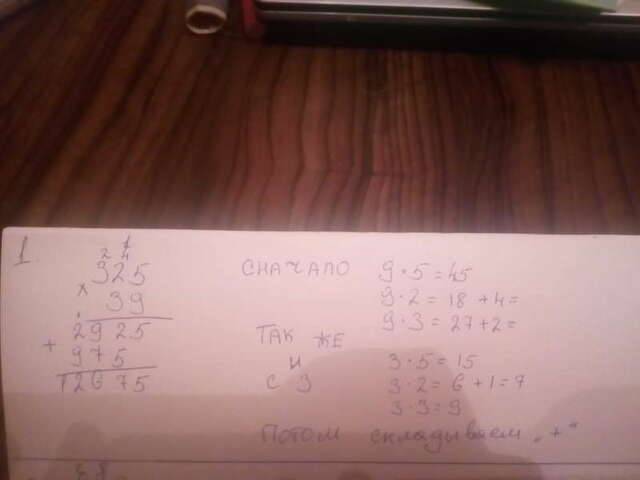 1.
2 4 1
325
× 39
2925
+ 975
12675
СНАЧАЛО 9·5=45
9·2=18+4=
9·3=27+2=
ТАК ЖЕ
И
С 3
3·5=15
3·2=6+1=7
3·3=9
ПОТОМ складываем „+“